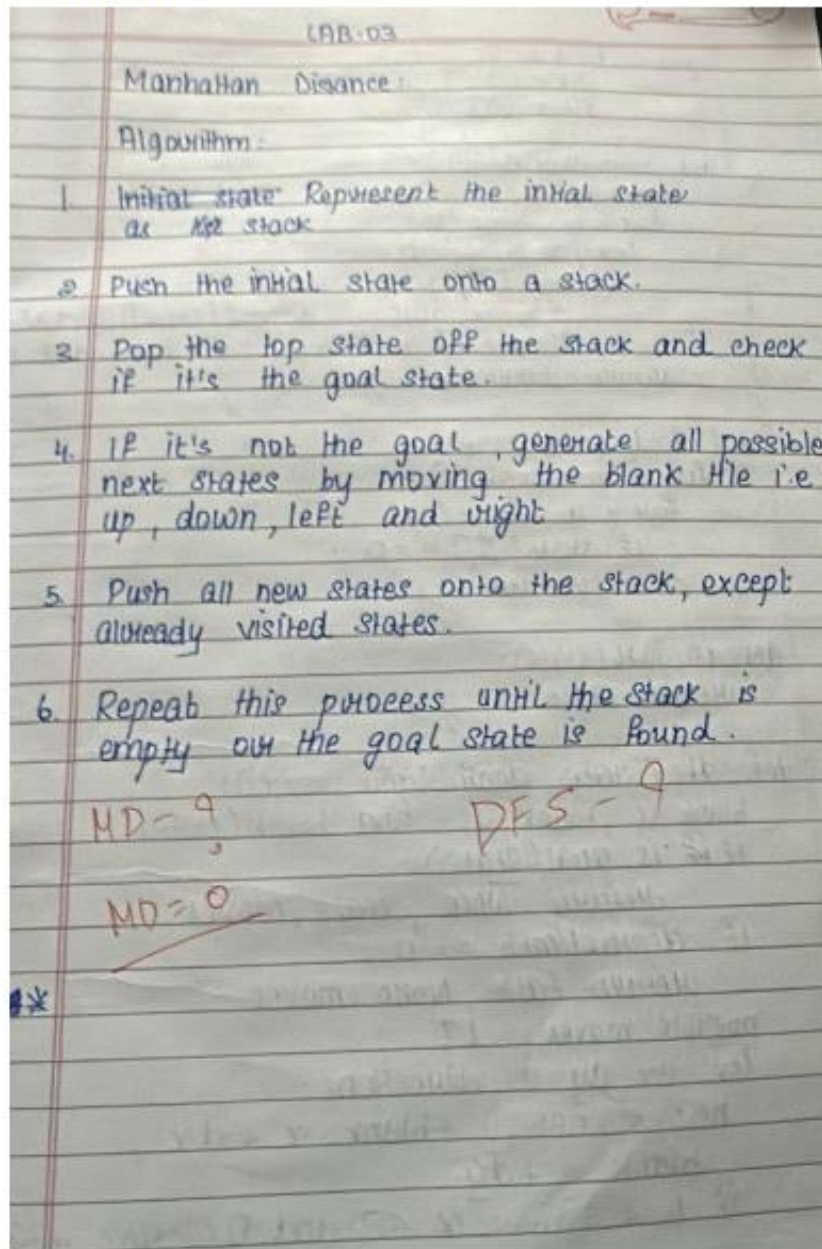 LAB-03
Manhattan Disance:
Algorithm:
1. Initial state Represent the intial state
as stack
2. Push the intial state onto a stack.
3 Pop the top state off the stack and check
if it's the goal state.
4. If it's not the goal, generate all possible
next states by moving the blank tile i.e
up, down, left and right
5. Push all new states onto the stack, except
already visited states.
6. Repeat this process until the stack is
empty or the goal state is found.
MD - 9 DFS - 9
MD = 0
*